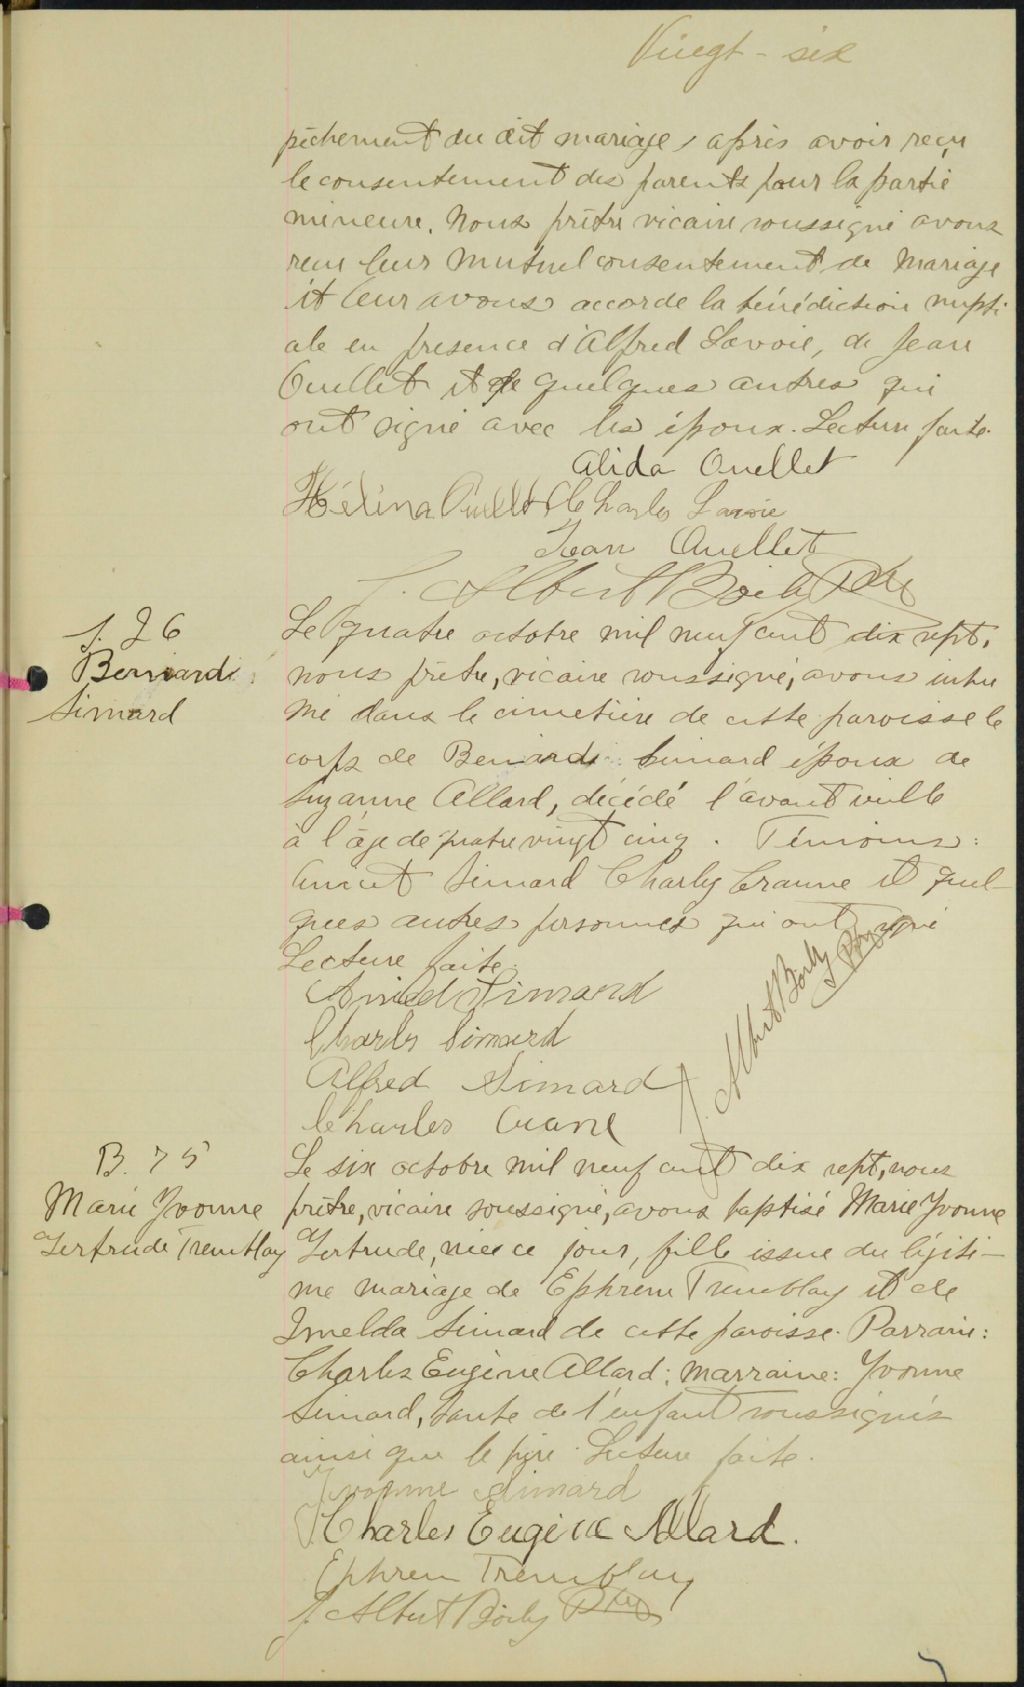 Vingt-six
pêchement du dit mariage, après avoir reçu
le consentement des parents pour la partie
mineure. Nous prêtre vicaire soussigné avons
reçu leur mutuel consentement de mariage
et leur avons accordé la bénédiction nupti
ale en présence d'Alfred Savoie, de Jean
Ouellet et de quelques autres qui
ont signé avec les époux. Lecture faite.
Alida Ouellet
Hélèna Ouellet Charles Savoie
Jean Ouellet
J. Albert Boily Ptre
S. 26
Bernard
Simard
Le quatre octobre mil neuf cent dix sept,
nous prêtre, vicaire soussigné, avons inhu
mé dans le cimetière de cette paroisse le
corps de Bernard Simard époux de
Suzanne Allard, décédé l'avant veille
à l'âge de quatre vingt cinq. Témoins:
Simard Charles Cranne et quel-
ques autres personnes qui ont signé
Lecture faite.
Simard
Charles Simard
Alfred Simard
Charles Crane
J. Albert Boily Ptre
B. 75
Marie Yvonne
Gertrude Tremblay
Le six octobre mil neuf cent dix sept, nous
prêtre, vicaire soussigné, avons baptisé Marie Yvonne
Gertrude, née ce jour, fille issue du légiti-
me mariage de Ephrem Tremblay et de
Imelda Simard de cette paroisse. Parrain:
Charles Eugène Allard; marraine: Yvonne
Simard, tante de l'enfant soussignés
ainsi que le père. Lecture faite.
Yvonne Simard
Charles Eugène Allard.
Ephrem Tremblay
J. Albert Boily Ptre